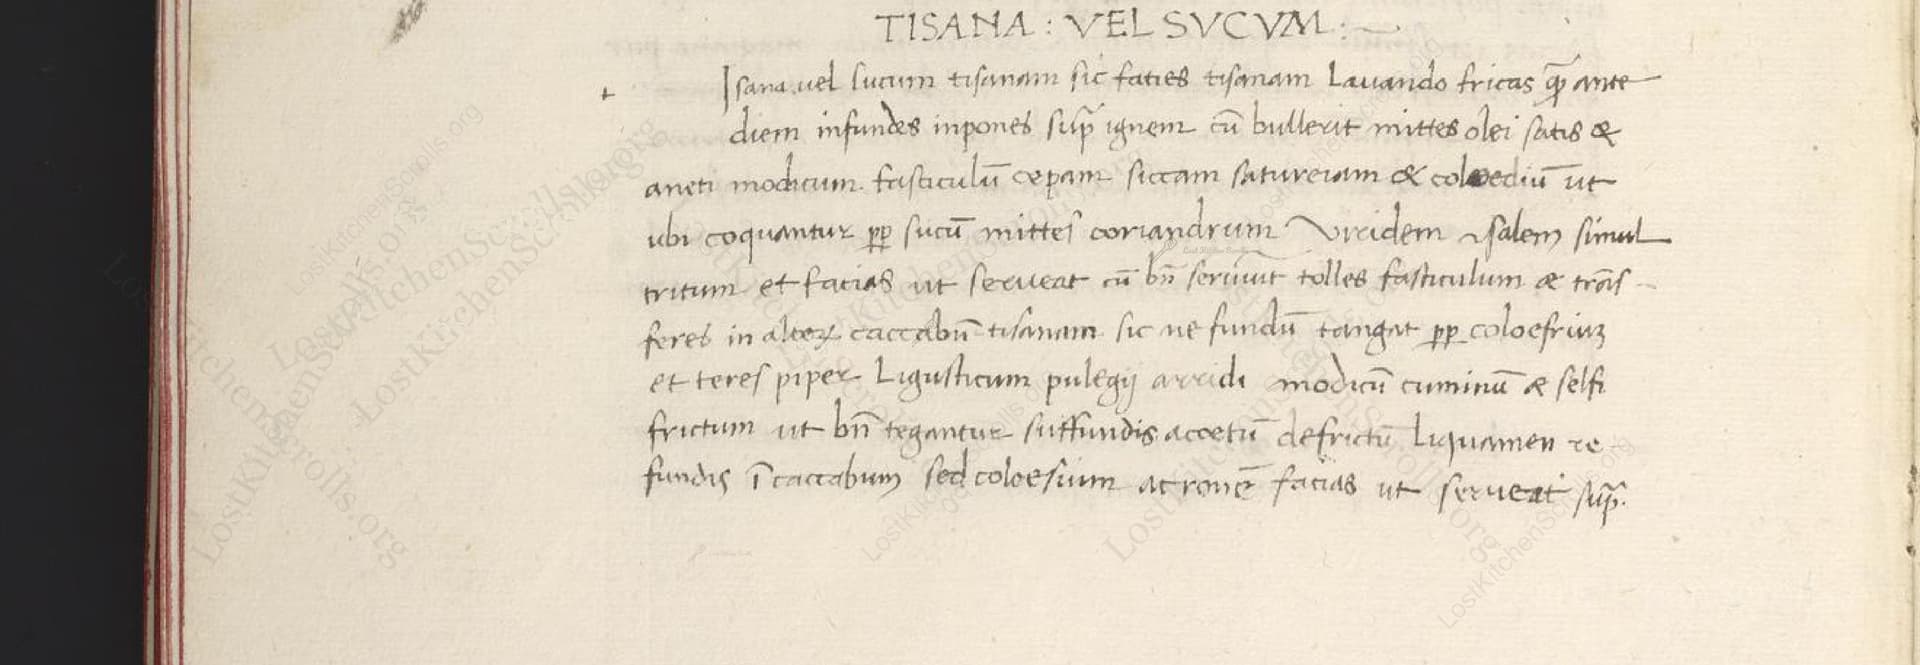 TISANA : VEL SVCVM :
Isana vel sucum tisanam sic faties tisanam Lauando fricas quā ante
diem infundes inpones sup̄ ignem cū bullerit mittes olei satis &
aneti modicum fasticulū cepam siccam satureiam & coloediū ut
ubi coquantur pp sucū mittes coriandrum Viridem & salem simul
tritum et facias ut serueat cū bn̄ seruuīt tolles fasticulum & trās
feres in alter caccabū tisanam sic ne fundū tangat pp coloefrium
et teres piper Ligusticum pulegij arridi modicū cuminū & selfi
frictum ut bn̄ tegantur suffundis accetū defrictū Liquamen re
fundis ī caccabum sed coloesium acronē facias ut serueat sup̄.
LostKitchenScrolls.org